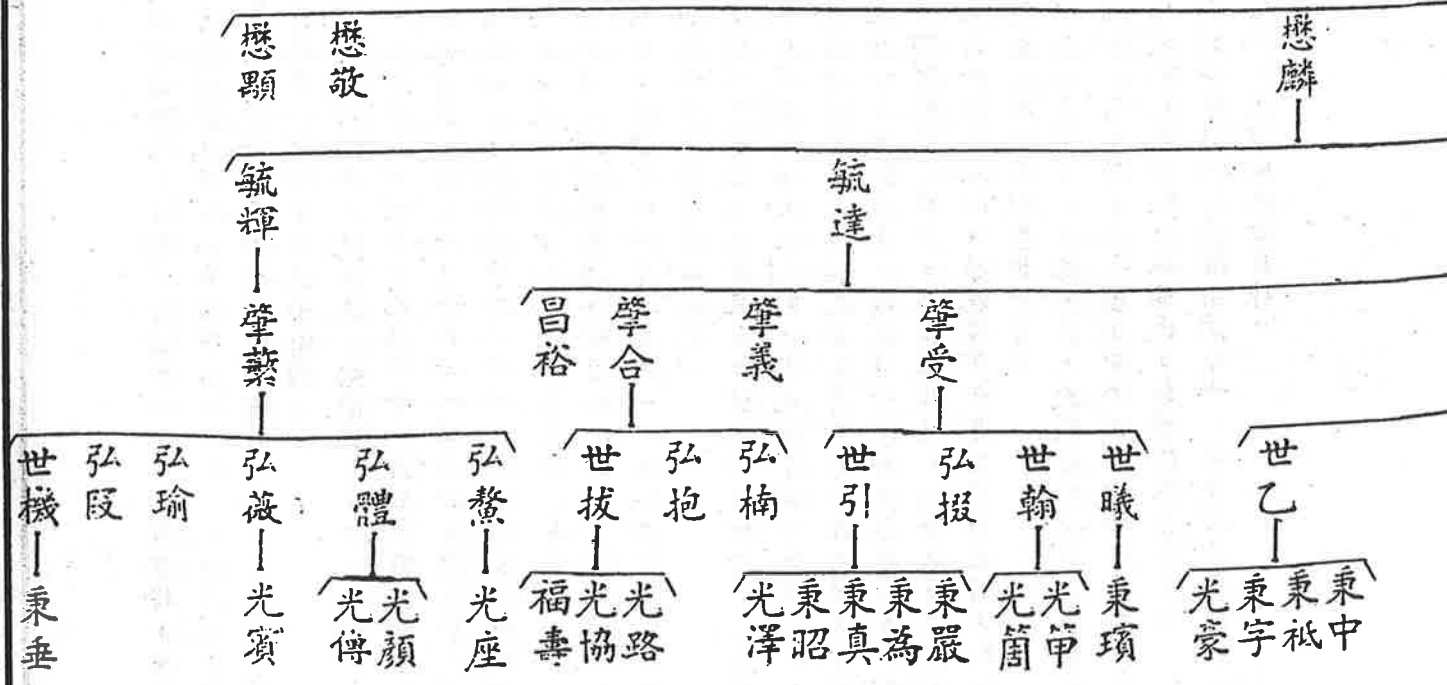 懋麟
懋敬
懋顯
毓達
毓輝
肇受
肇義
肇合
昌裕
肇蘩
世乙
世曦
世翰
弘掇
世引
弘楠
弘抱
世拔
弘鰲
弘體
弘薇
弘瑜
弘段
世機
秉中
秉祗
秉字
光豪
秉璸
光笛
光箇
秉嚴
秉為
秉真
秉昭
光澤
光路
光協
福壽
光座
光顏
光傅
光賓
秉垂